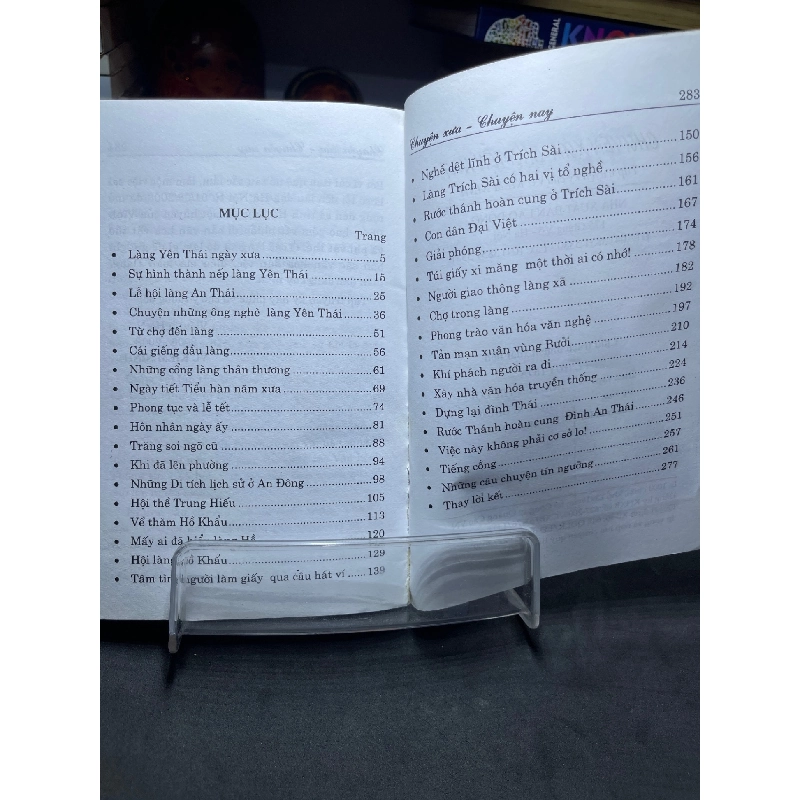 GENERAL
MỤC LỤC
Trang
• Làng Yên Thái ngày xưa 5
• Sự hình thành nếp làng Yên Thái 15
• Lễ hội làng An Thái 25
• Chuyện những ông nghè làng Yên Thái 36
• Từ chợ đến làng 51
• Cái giếng đầu làng 56
• Những cổng làng thân thương 61
• Ngày tiết Tiểu hàn năm xưa 69
• Phong tục và lễ tết 74
• Hôn nhân ngày ấy 81
• Trăng soi ngõ cũ 88
• Khi đã lên phường 94
• Những Di tích lịch sử ở An Đông 98
• Hội thề Trung Hiếu 105
• Về thăm Hồ Khẩu 113
• Mấy ai đã 120
• Hội làng Hồ Khẩu 129
• Tâm tình người làm giấy qua câu hát ví 139
Chuyện xưa – Chuyện nay 283
• Nghề dệt lĩnh ở Trích Sài 150
• Làng Trích Sài có hai vị tổ nghề 156
• Rước thánh hoàn cung ở Trích Sài 161
• Con dân Đại Việt 167
• Giải phóng 174
• Túi giấy xi măng một thời ai có nhớ! 178
• Người giao thông làng xã 182
• Chợ trong làng 192
• Phong trào văn hóa văn nghệ 197
• Tản mạn xuân vùng Bưởi 210
• Khí phách người ra đi 214
• Xây nhà văn hóa truyền thống 224
• Dựng lại đình Thái 236
• Rước Thánh hoàn cung Đình An Thái 246
• Việc này không phải cơ sở lo! 251
• Tiếng cồng 257
• Những câu chuyện tín ngưỡng 261
• Thay lời kết 277